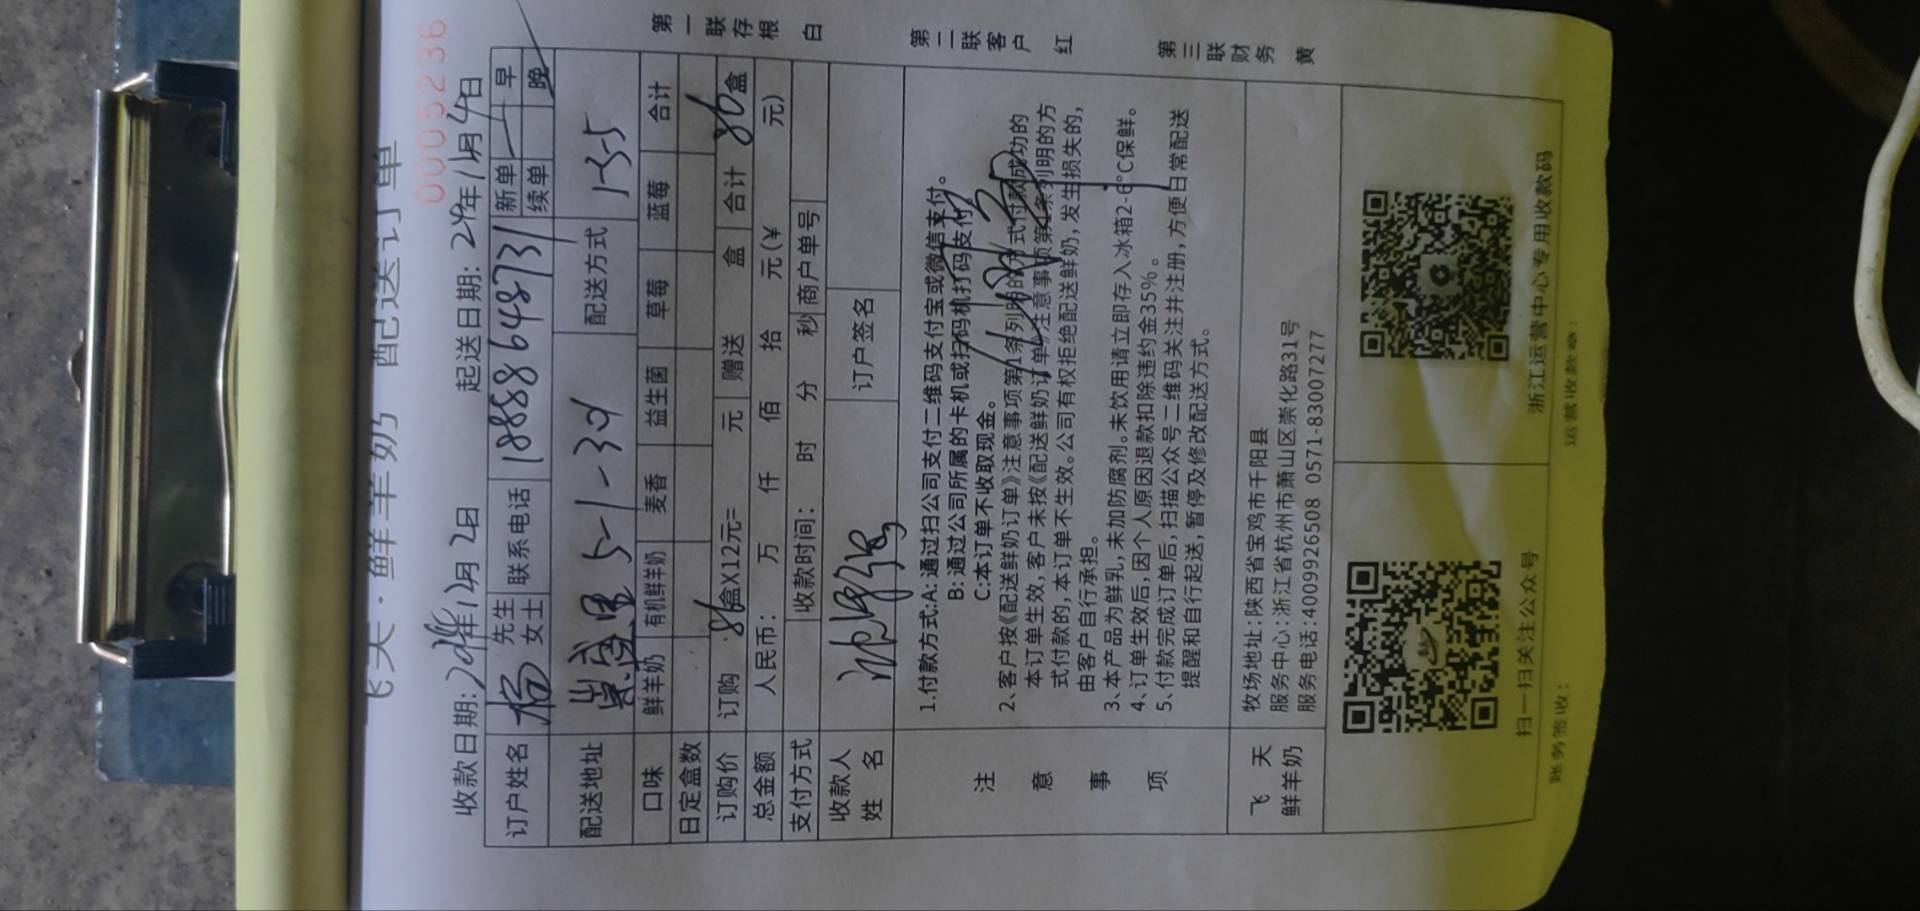 0005236
飞天·鲜羊奶 配送订单
收款日期: 24年11月2日 起送日期: 24年11月4日
订户姓名 杨 先生 女士 联系电话 18886164873 新单 续单 早 晚
配送地址 5-1-301 配送方式 1-3-5
口味 鲜羊奶 有机鲜羊奶 麦香 益生菌 草莓 蓝莓 合计
日定盒数
订购价 订购 86盒X12元= 元 赠送 盒 合计 86盒
总金额 人民币: 万 仟 佰 拾 元(¥ 元)
支付方式 收款时间: 时 分 秒 商户单号
收款人 姓名 订户签名
注意事项
1.付款方式:A: 通过扫公司支付二维码支付宝或微信支付。
B: 通过公司所属的卡机或扫码机打码支付。
C:本订单不收取现金。
2、客户按《配送鲜奶订单》注意事项第1条列明的方式付款成功的
本订单生效,客户未按《配送鲜奶订单》注意事项第1条列明的方
式付款的,本订单不生效。公司有权拒绝配送鲜奶,发生损失的,
由客户自行承担。
3、本产品为鲜乳,未加防腐剂。未饮用请立即存入冰箱2-6°C保鲜。
4、订单生效后,因个人原因退款扣除违约金35%。
5、付款完成订单后,扫描公众号二维码关注并注册,方便日常配送
提醒和自行起送,暂停及修改配送方式。
飞天 鲜羊奶
牧场地址:陕西省宝鸡市千阳县
服务中心:浙江省杭州市萧山区崇化路31号
服务电话:4009926508 0571-83007277
扫一扫关注公众号 浙江运营中心专用收款码
账务签收: 运营收款章:
第一联存根 白
第二联客户 红
第三联财务 黄